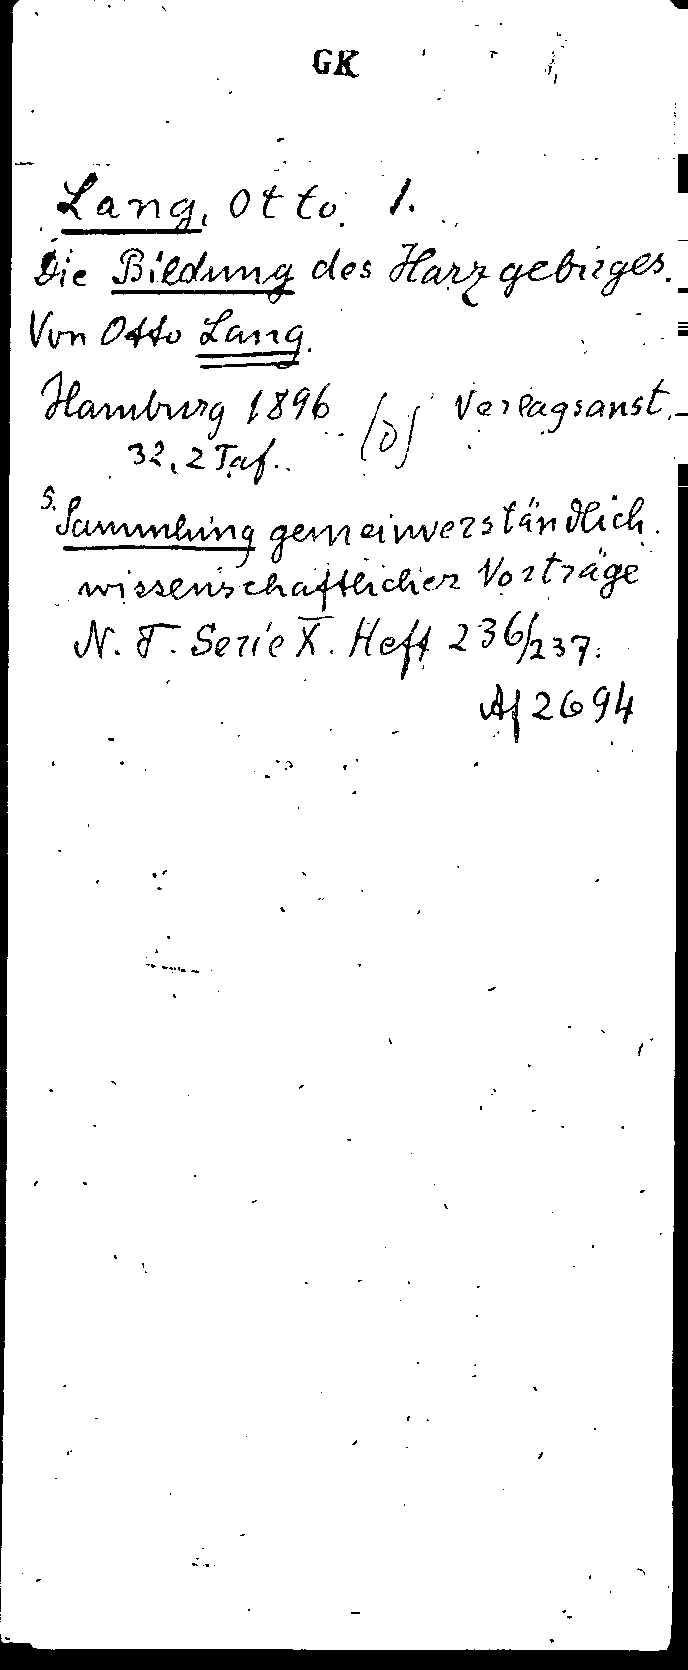 GK
Lang, Otto. 1.
Die Bildung des Harzgebirges.
Von Otto Lang.
Hamburg 1896 Verlagsanst.
32, 2 Taf.
S. Sammlung gemeinverständlich.
wissenschaftlicher Vorträge
N. F. Serie X. Heft 236/237.
Af 2694